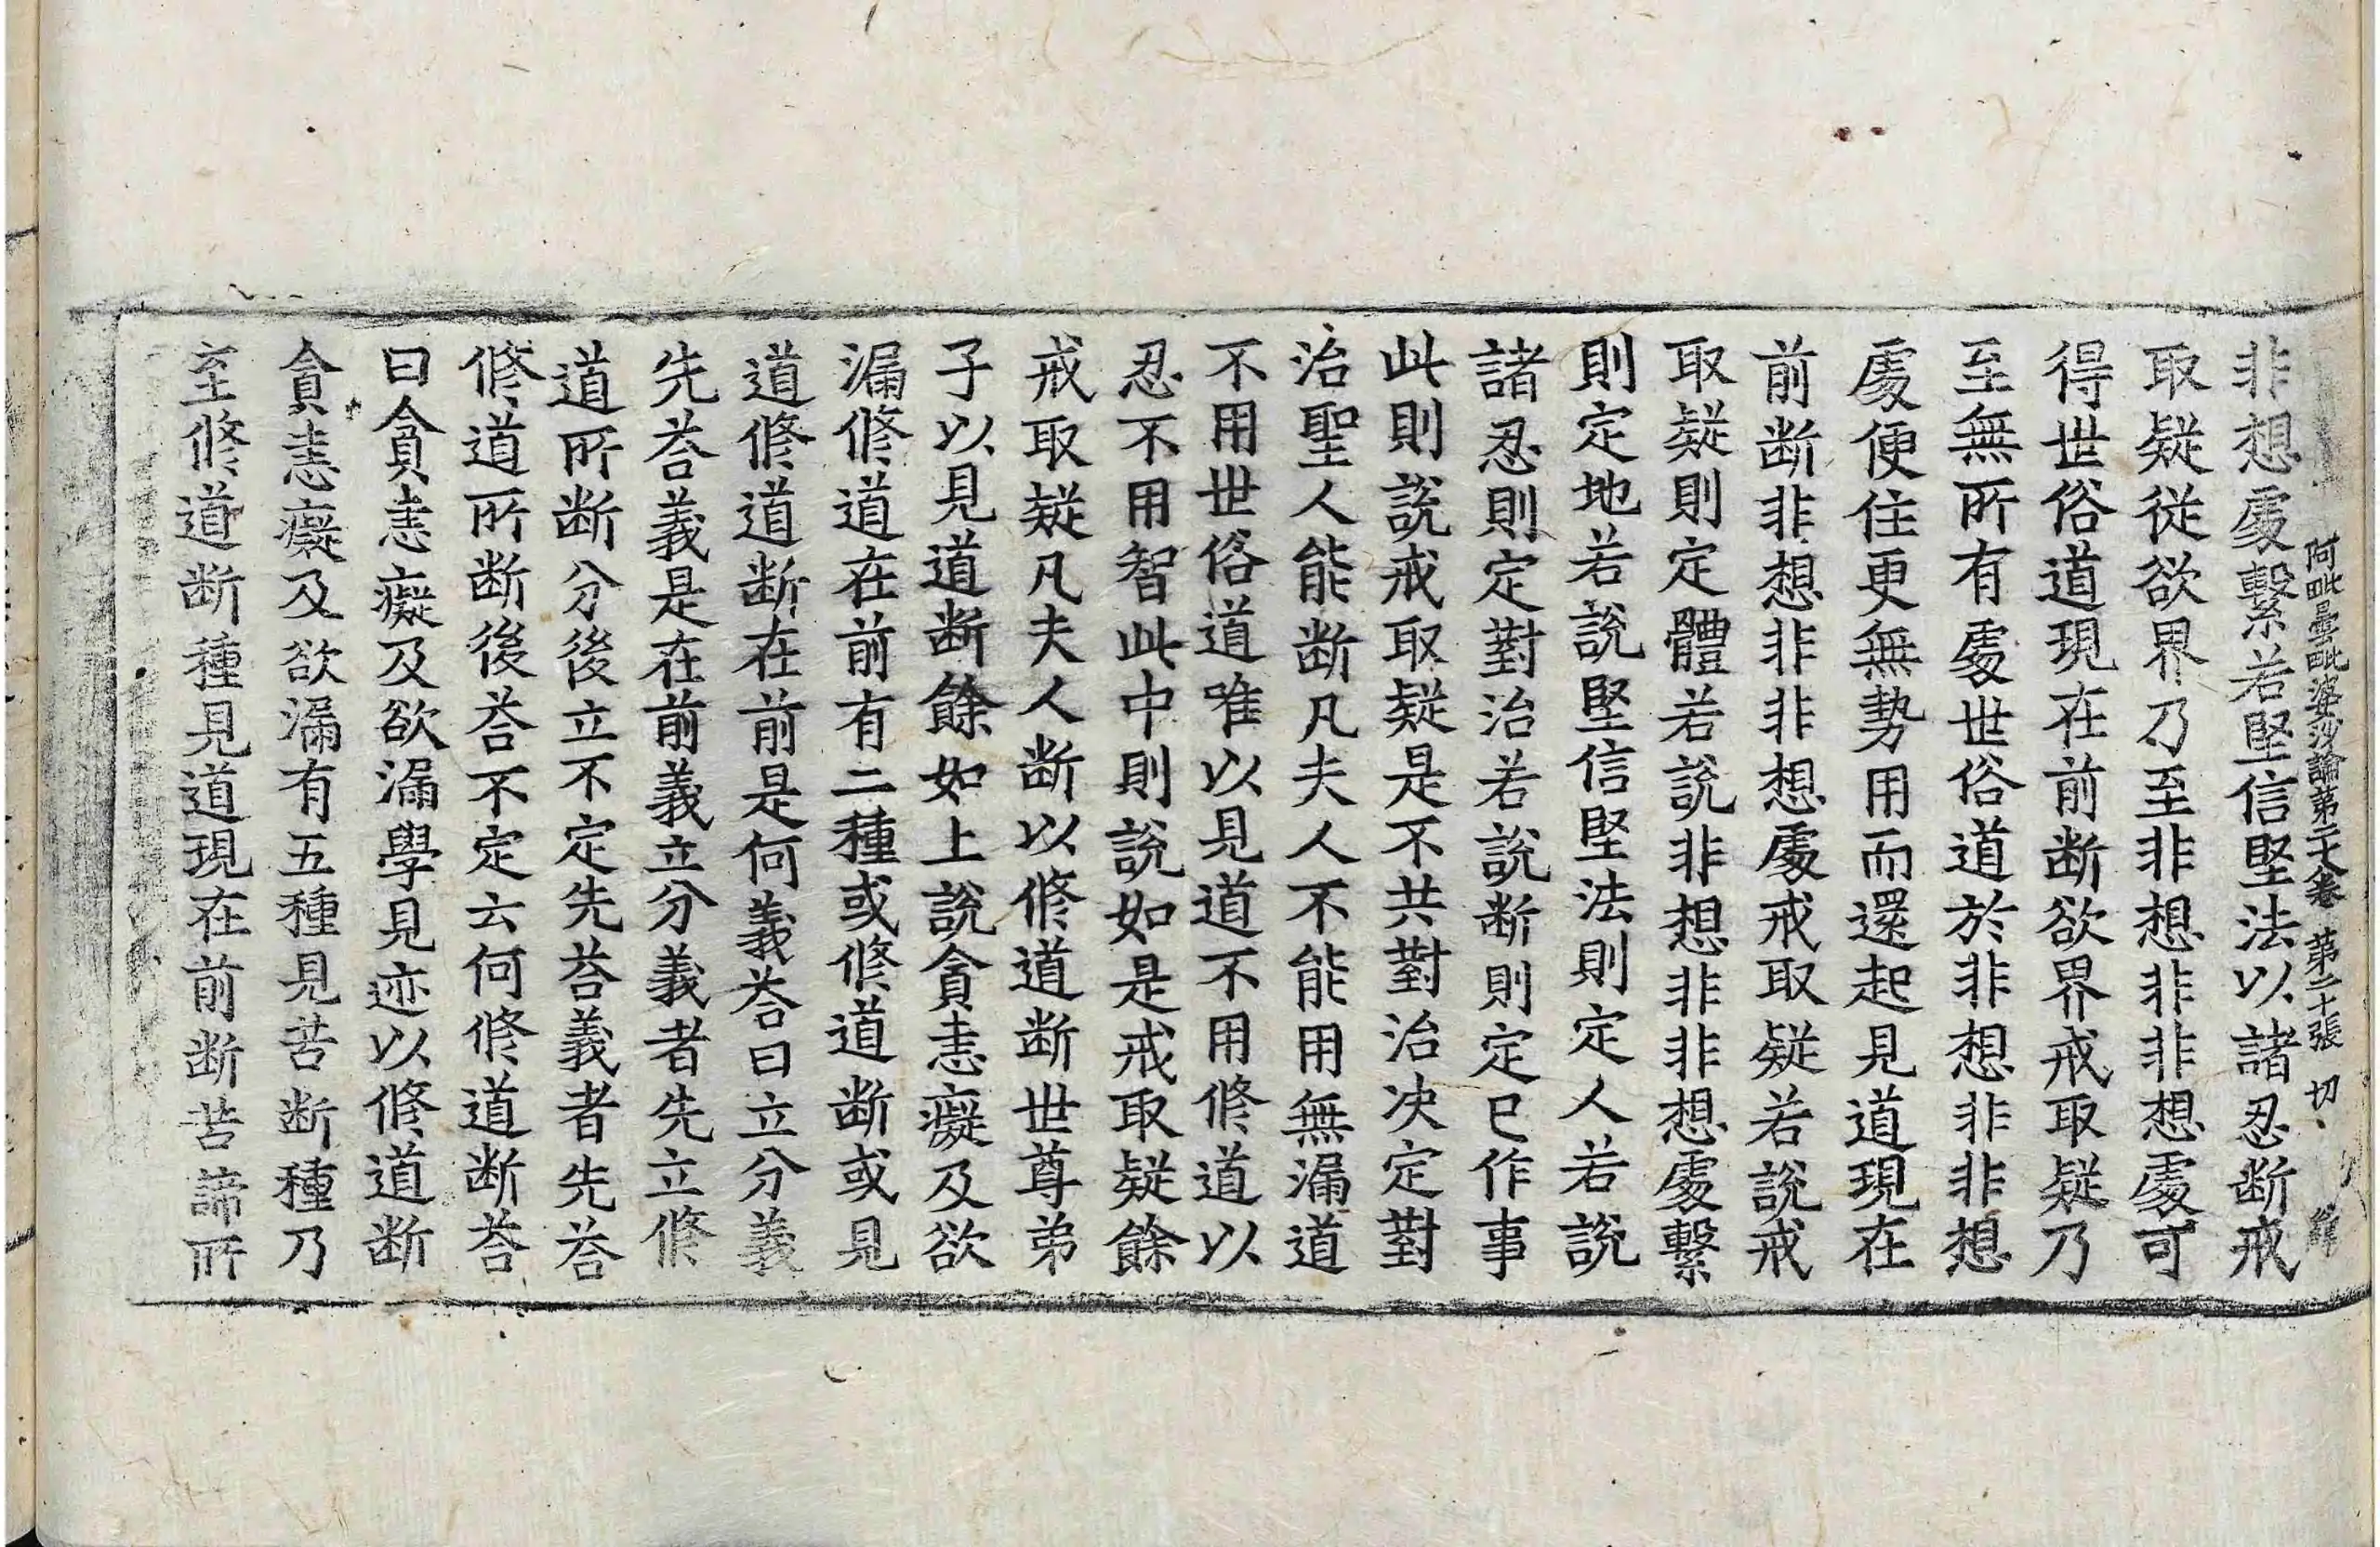 阿毗曇毗婆沙論第二六卷 第二十張 切
非想處繫若堅信堅法以諸忍断戒
取疑從欲界乃至非想非非想處可
得世俗道現在前断欲界戒取疑乃
至無所有處世俗道於非想非非想
處便住更無勢用而還起見道現在
前断非想非非想處戒取疑若說戒
取疑則定體若說非想非非想處繫
則定地若說堅信堅法則定人若說
諸忍則定對治若說断則定已作事
此則說戒取疑是不共對治决定對
治聖人能断凡夫人不能用無漏道
不用世俗道唯以見道不用修道以
忍不用智此中則說如是戒取疑餘
戒取疑凡夫人断以修道断世尊弟
子以見道断餘如上說貪恚癡及欲
漏修道在前有二種或修道断或見
道修道断在前是何義荅曰立分義
先荅義是在前義立分義者先立修
道所断分後立不定先荅義者先荅
修道所断後荅不定云何修道断荅
曰貪恚癡及欲漏學見迹以修道断
貪恚癡及欲漏有五種見苦断種乃
至修道断種見道現在前断苦諦所